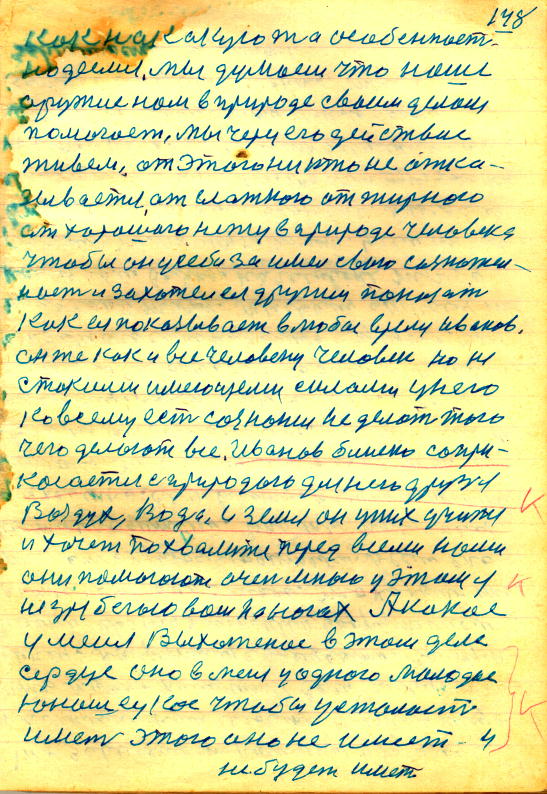 148
как на какую та особеность
надеемся, мы думаем что наше
оружие нам в природе своим делом
помогает, мы через его действие
живем, от этого никто не отка-
зывается от слаткого от жирного
от хорошого нету в природе человека
чтобы он у себя заимел свою сознатель-
ность и захотел ея другим показат
как ея показывает в любое время иванов.
он же как и все человеки человек но не
стакими имеющеми силами у него
ко всему ест сознание не делат того
чего делают все. Иванов близко сопри-
касается с природаю для него друзя
Воздух, вода, и земля он у них учится
и хочет похвалится перед всеми нами
они помогают очен много у этом я
не зря бегаю вам на ногах А какое
у меня выхоженое в этом деле
сердце оно в меня у одного молодое
юношеукое чтобы усталост
имет этого оно не имеет и
не будет имет